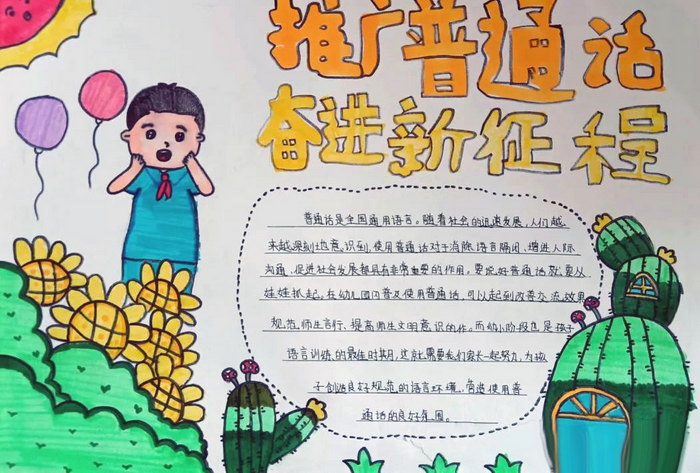 推广普通话
奋进新征程
普通话是全国通用语言。随着社会的迅速发展,人们越
来越深刻地意识到,使用普通话对于消除语言隔阂、增进人际
沟通、促进社会发展都具有非常重要的作用。要说好普通话就要从
娃娃抓起。在幼儿园普及使用普通话,可以起到改善交流效果
规范师生言行、提高师生文明意识的作,而幼小阶段也是孩子
语言训练的最佳时期,这就需要我们家长一起努力,为孩
子创造良好规范的语言环境,营造使用普
通话的良好氛围。